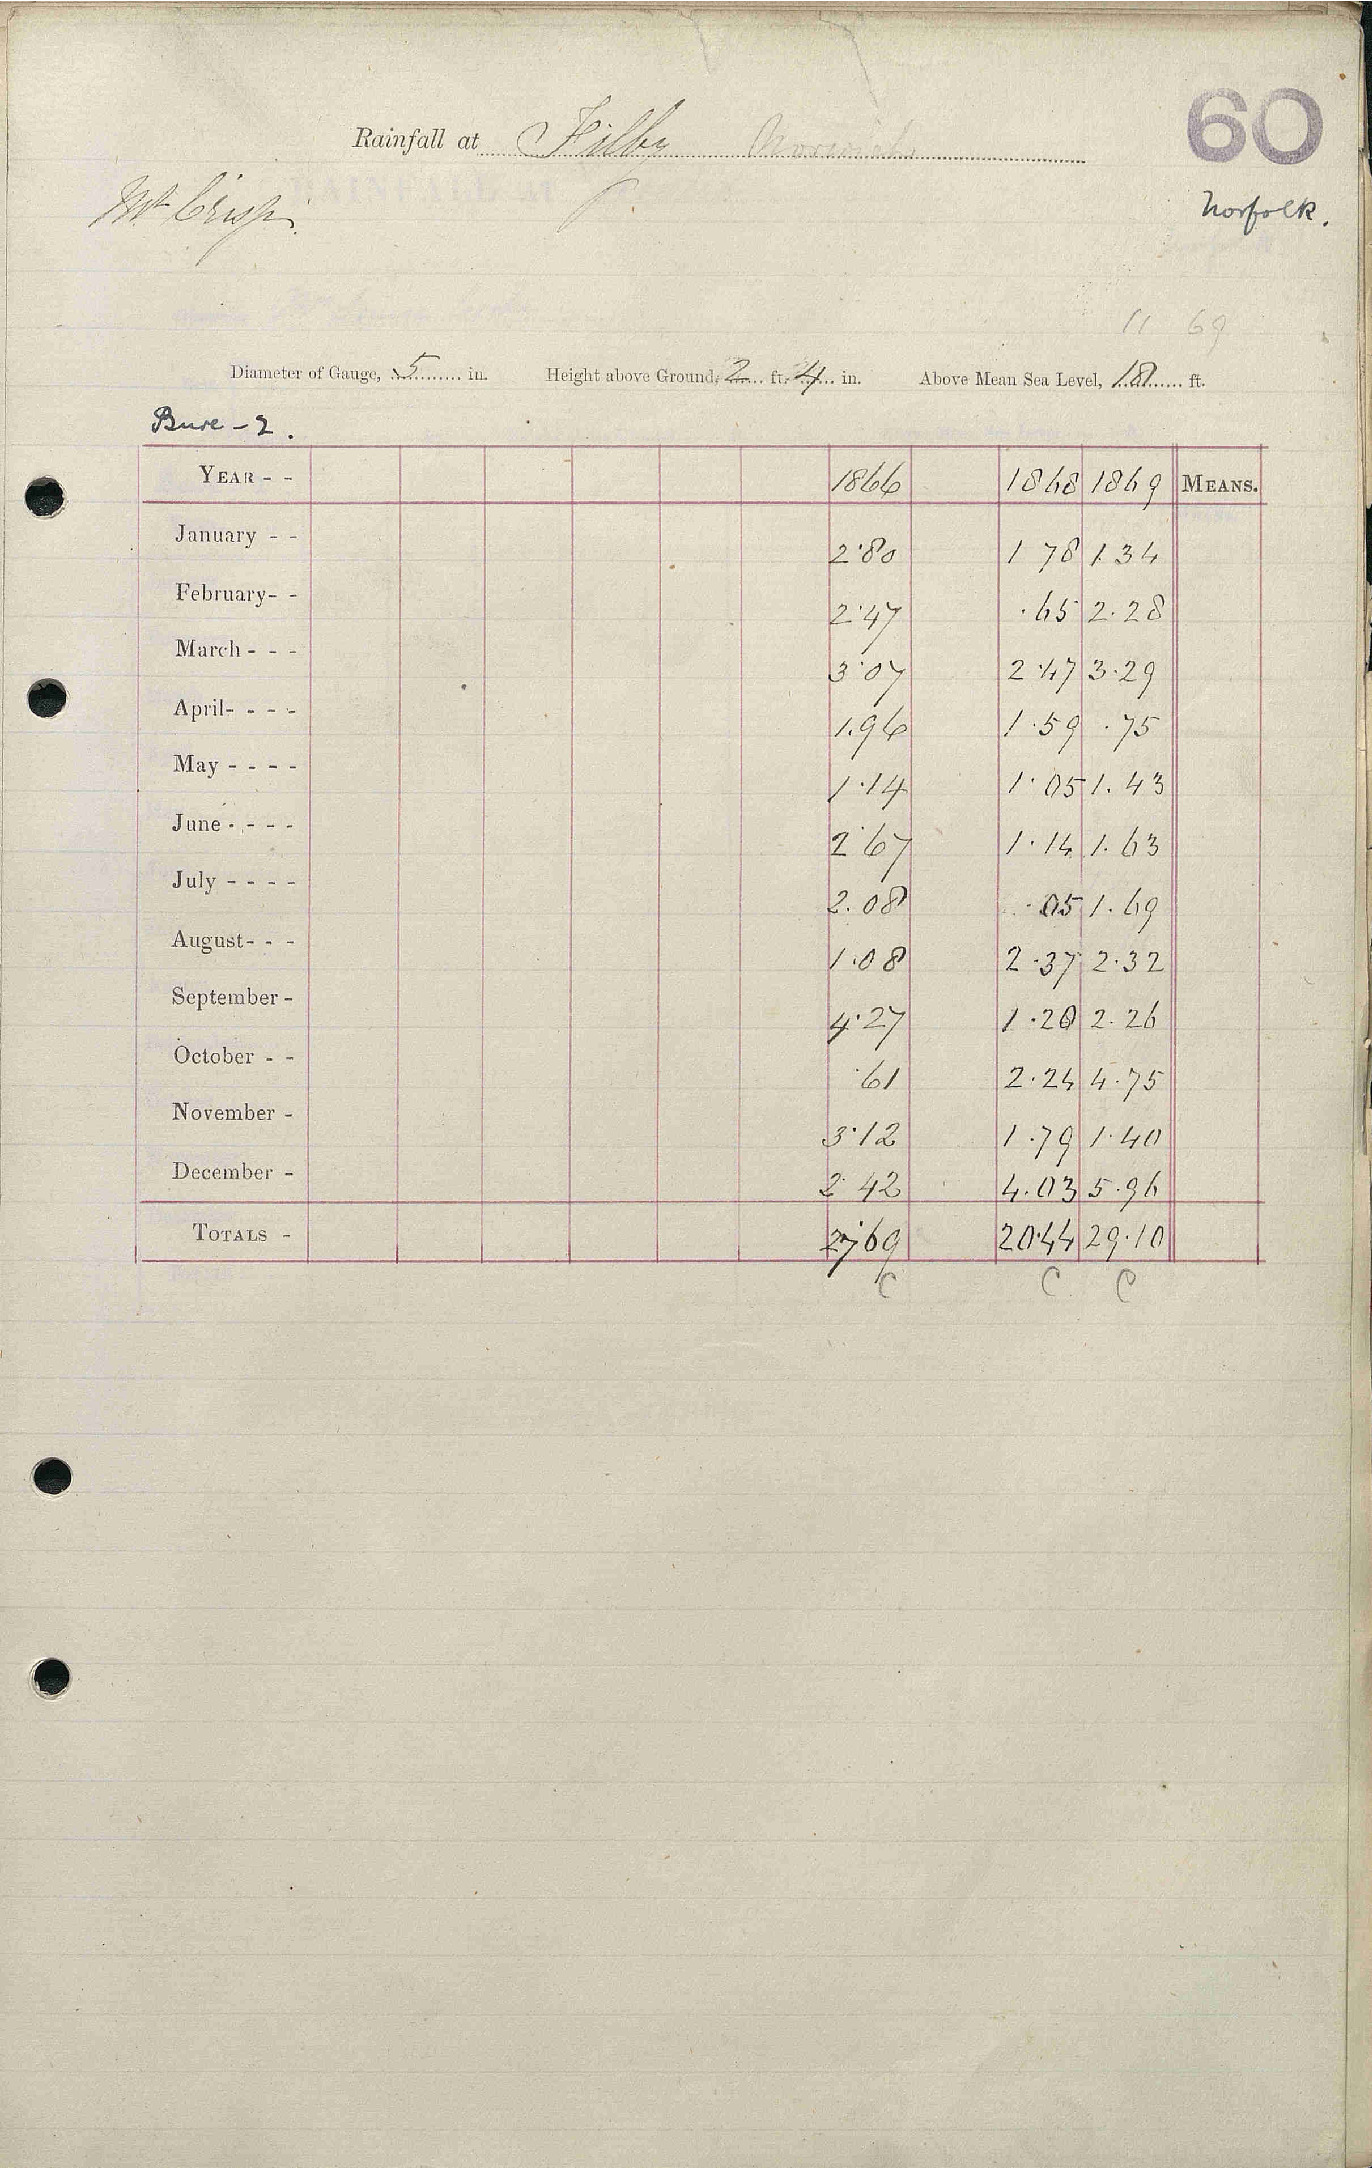 60
Rainfall at Filby Norwich
Mr Crisp.
Norfolk.
11 69
Diameter of Gauge, 5 in. Height above Ground, 2 ft. 4 in. Above Mean Sea Level, 18 ft.
Bure - 2.
YEAR - - 1866 1868 1869 MEANS.
January - - 2.80 1 78 1.34
February - - 2.47 .65 2.28
March - - - 3.07 2.47 3.29
April - - - - 1.96 1.59 .75
May - - - - 1.14 1.05 1.43
June - - - - 2.67 1.14 1.63
July - - - - 2.08 .05 1.69
August - - - 1.08 2.37 2.32
September - 4.27 1.28 2.26
October - - .61 2.24 4.75
November - 3.12 1.79 1.40
December - 2 42 4.03 5.96
TOTALS - 27.69 20.44 29.10
C C C